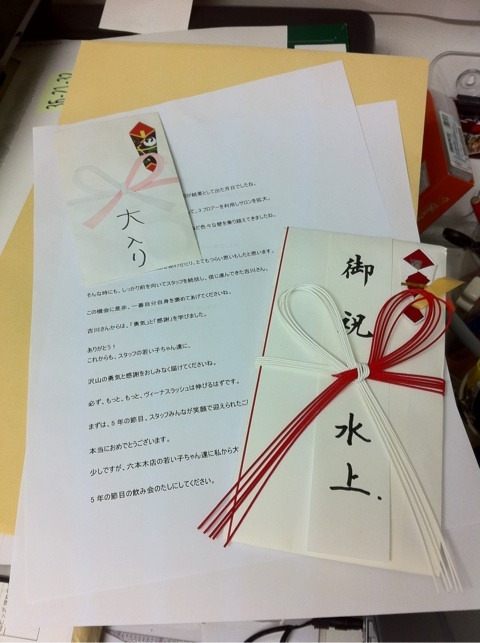 大入り
が結果として出た月日でしたね。
、2フロアーを利用しサロンを拡大。
色々な壁を乗り越えてきましたね。
とてもつらい思いもしたと思います。
そんな時にも、しっかり前を向いてスタッフを統括し、信じ進んできた吉川さん。
この機会に是非、一番自分自身を褒めてあげてくださいね。
吉川さんからは、「勇気」と「感謝」を学びました。
ありがとう！
これからも、スタッフの若い子ちゃん達に、
沢山の勇気と感謝をおしみなく届けてくださいね。
必ず、もっと、もっと、ヴィーナスラッシュは伸びるはずです。
まずは、5年の節目、スタッフみんなが笑顔で迎えられたこ
本当におめでとうございます。
少しですが、六本木店の若い子ちゃん達に私から大
5年の節目の飲み会のたしにしてください。
御祝
水上.